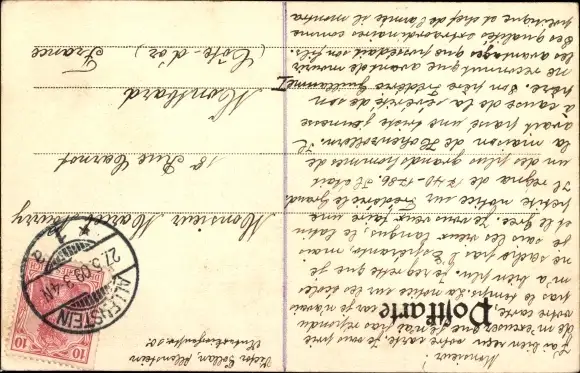 Monsieur!
J'ai bien reçu votre carte. Je vous prie
de m'excuser que je n'ai pas répondu
votre carte, mais car je n'avais
pas le temps. La notice sur les écoles
m'a bien plu. Je regrette que je
ne sache pas l'Esperanto, mais
je sais les vieux langues le latin
et le grec. Je vous veux faire une
petite notice sur Frédéric le Grand.
Il regna de 1740-1786. Il était
un des plus grands hommes de
la maison de Hohenzollern. Il
avait passé une triste jeunesse
à cause de la sévérité de son
père. Son père Frédéric Guillaume I
ne reconnut que avant de mourir
les avantages que possédait son fils.
Ses qualités extraordinaires comme
politique et chef de l'armée il montra
Postkarte
Allenstein
ALLENSTEIN
27.5.09
10
10
Monsieur Marcel
18 Rue Carnot
Montbard
(Côte-d'or)
France